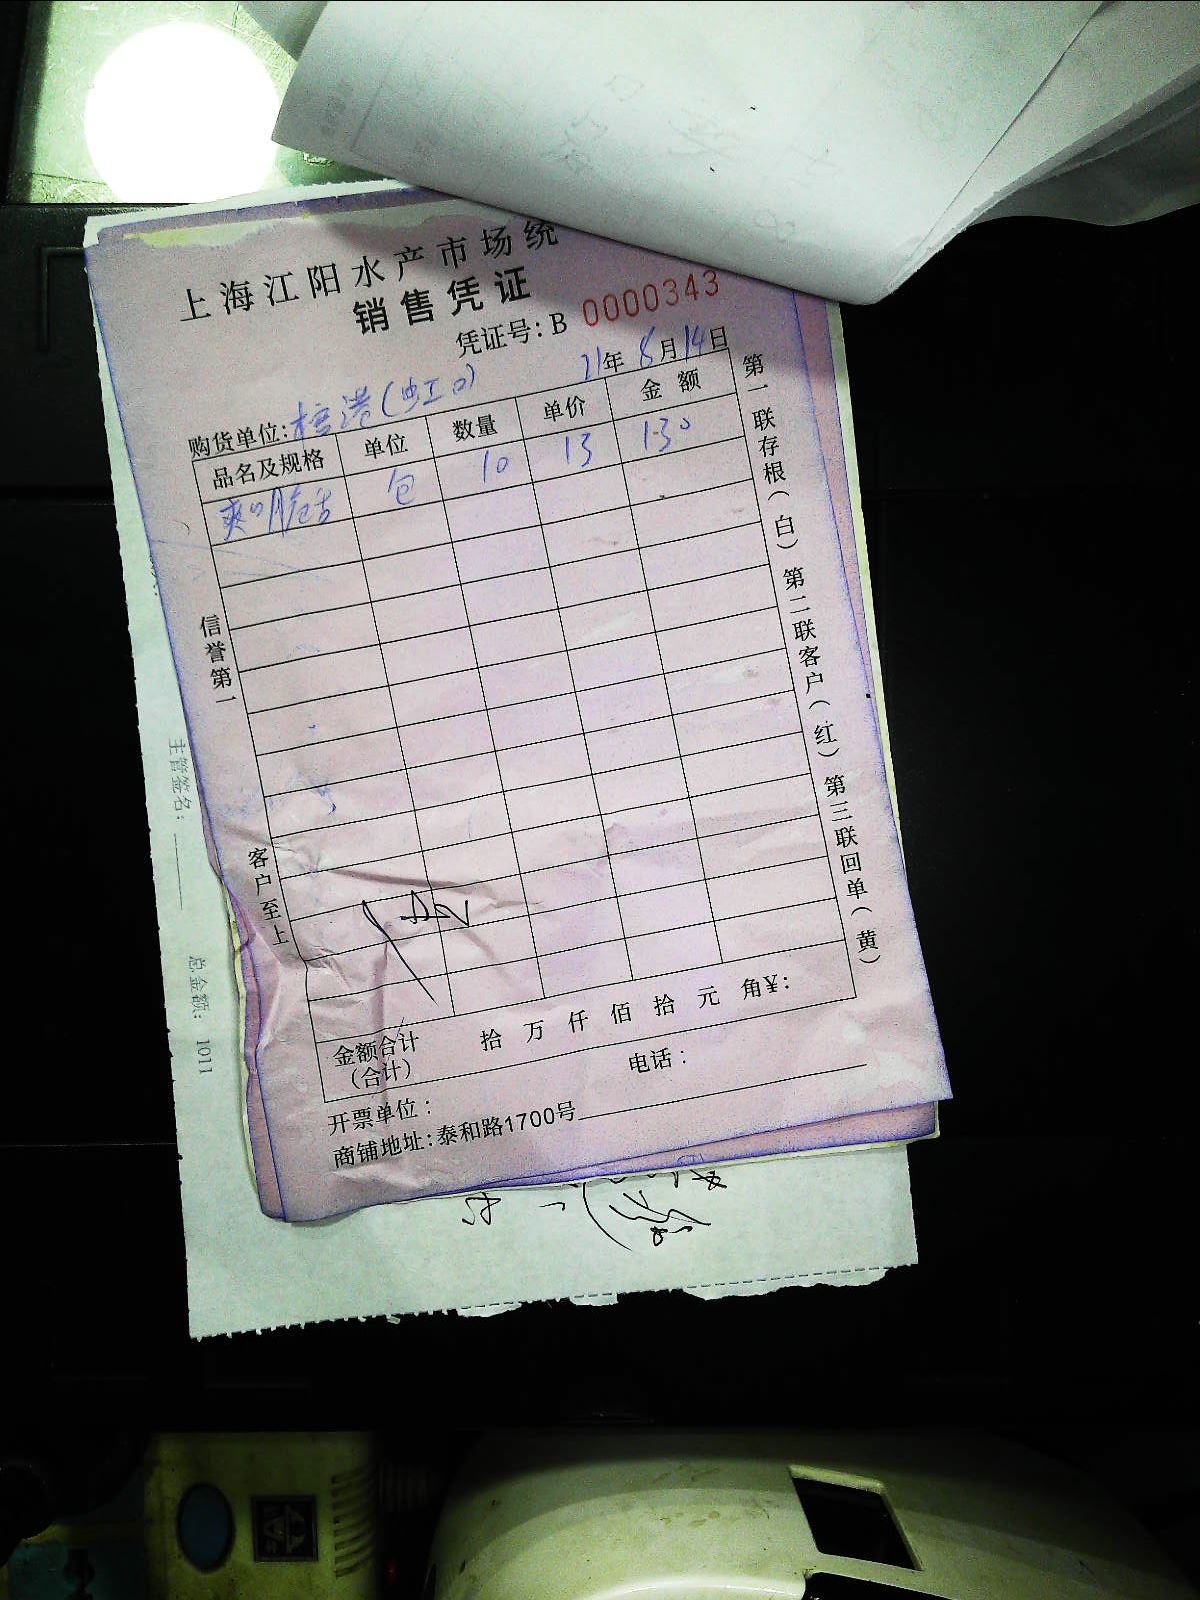 上海江阳水产市场统
销售凭证
凭证号：B 0000343
21年 8月 14日
购货单位：桂港（虹口）
品名及规格 单位 数量 单价 金额
爽口脆舌 包 10 13 130
信誉第一
客户至上
第一联存根（白） 第二联客户（红） 第三联回单（黄）
金额合计（合计） 拾 万 仟 佰 拾 元 角¥：
开票单位： 电话：
商铺地址：泰和路1700号
主管签名：
总金额： 1011